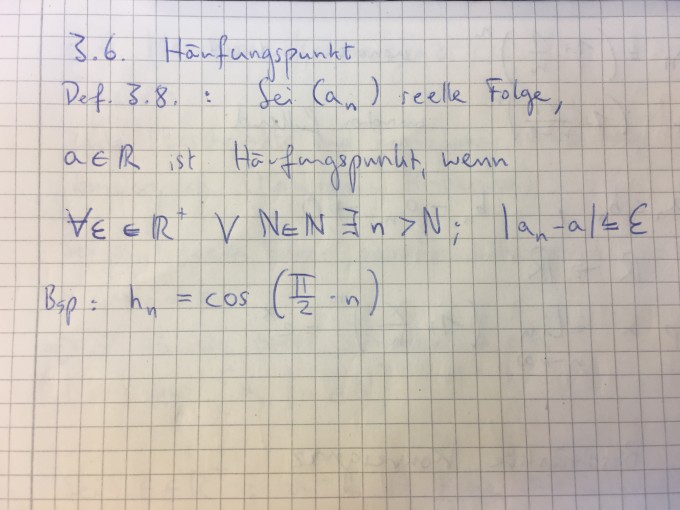 3.6. Häufungspunkt
Def. 3.8. : Sei (aₙ) reelle Folge,
a ∈ ℝ ist Häufungspunkt, wenn
∀ε ∈ ℝ⁺ ∀ N∈ℕ ∃ n > N ; |aₙ-a| ≤ ε
Bsp : hₙ = cos (π/2 · n)